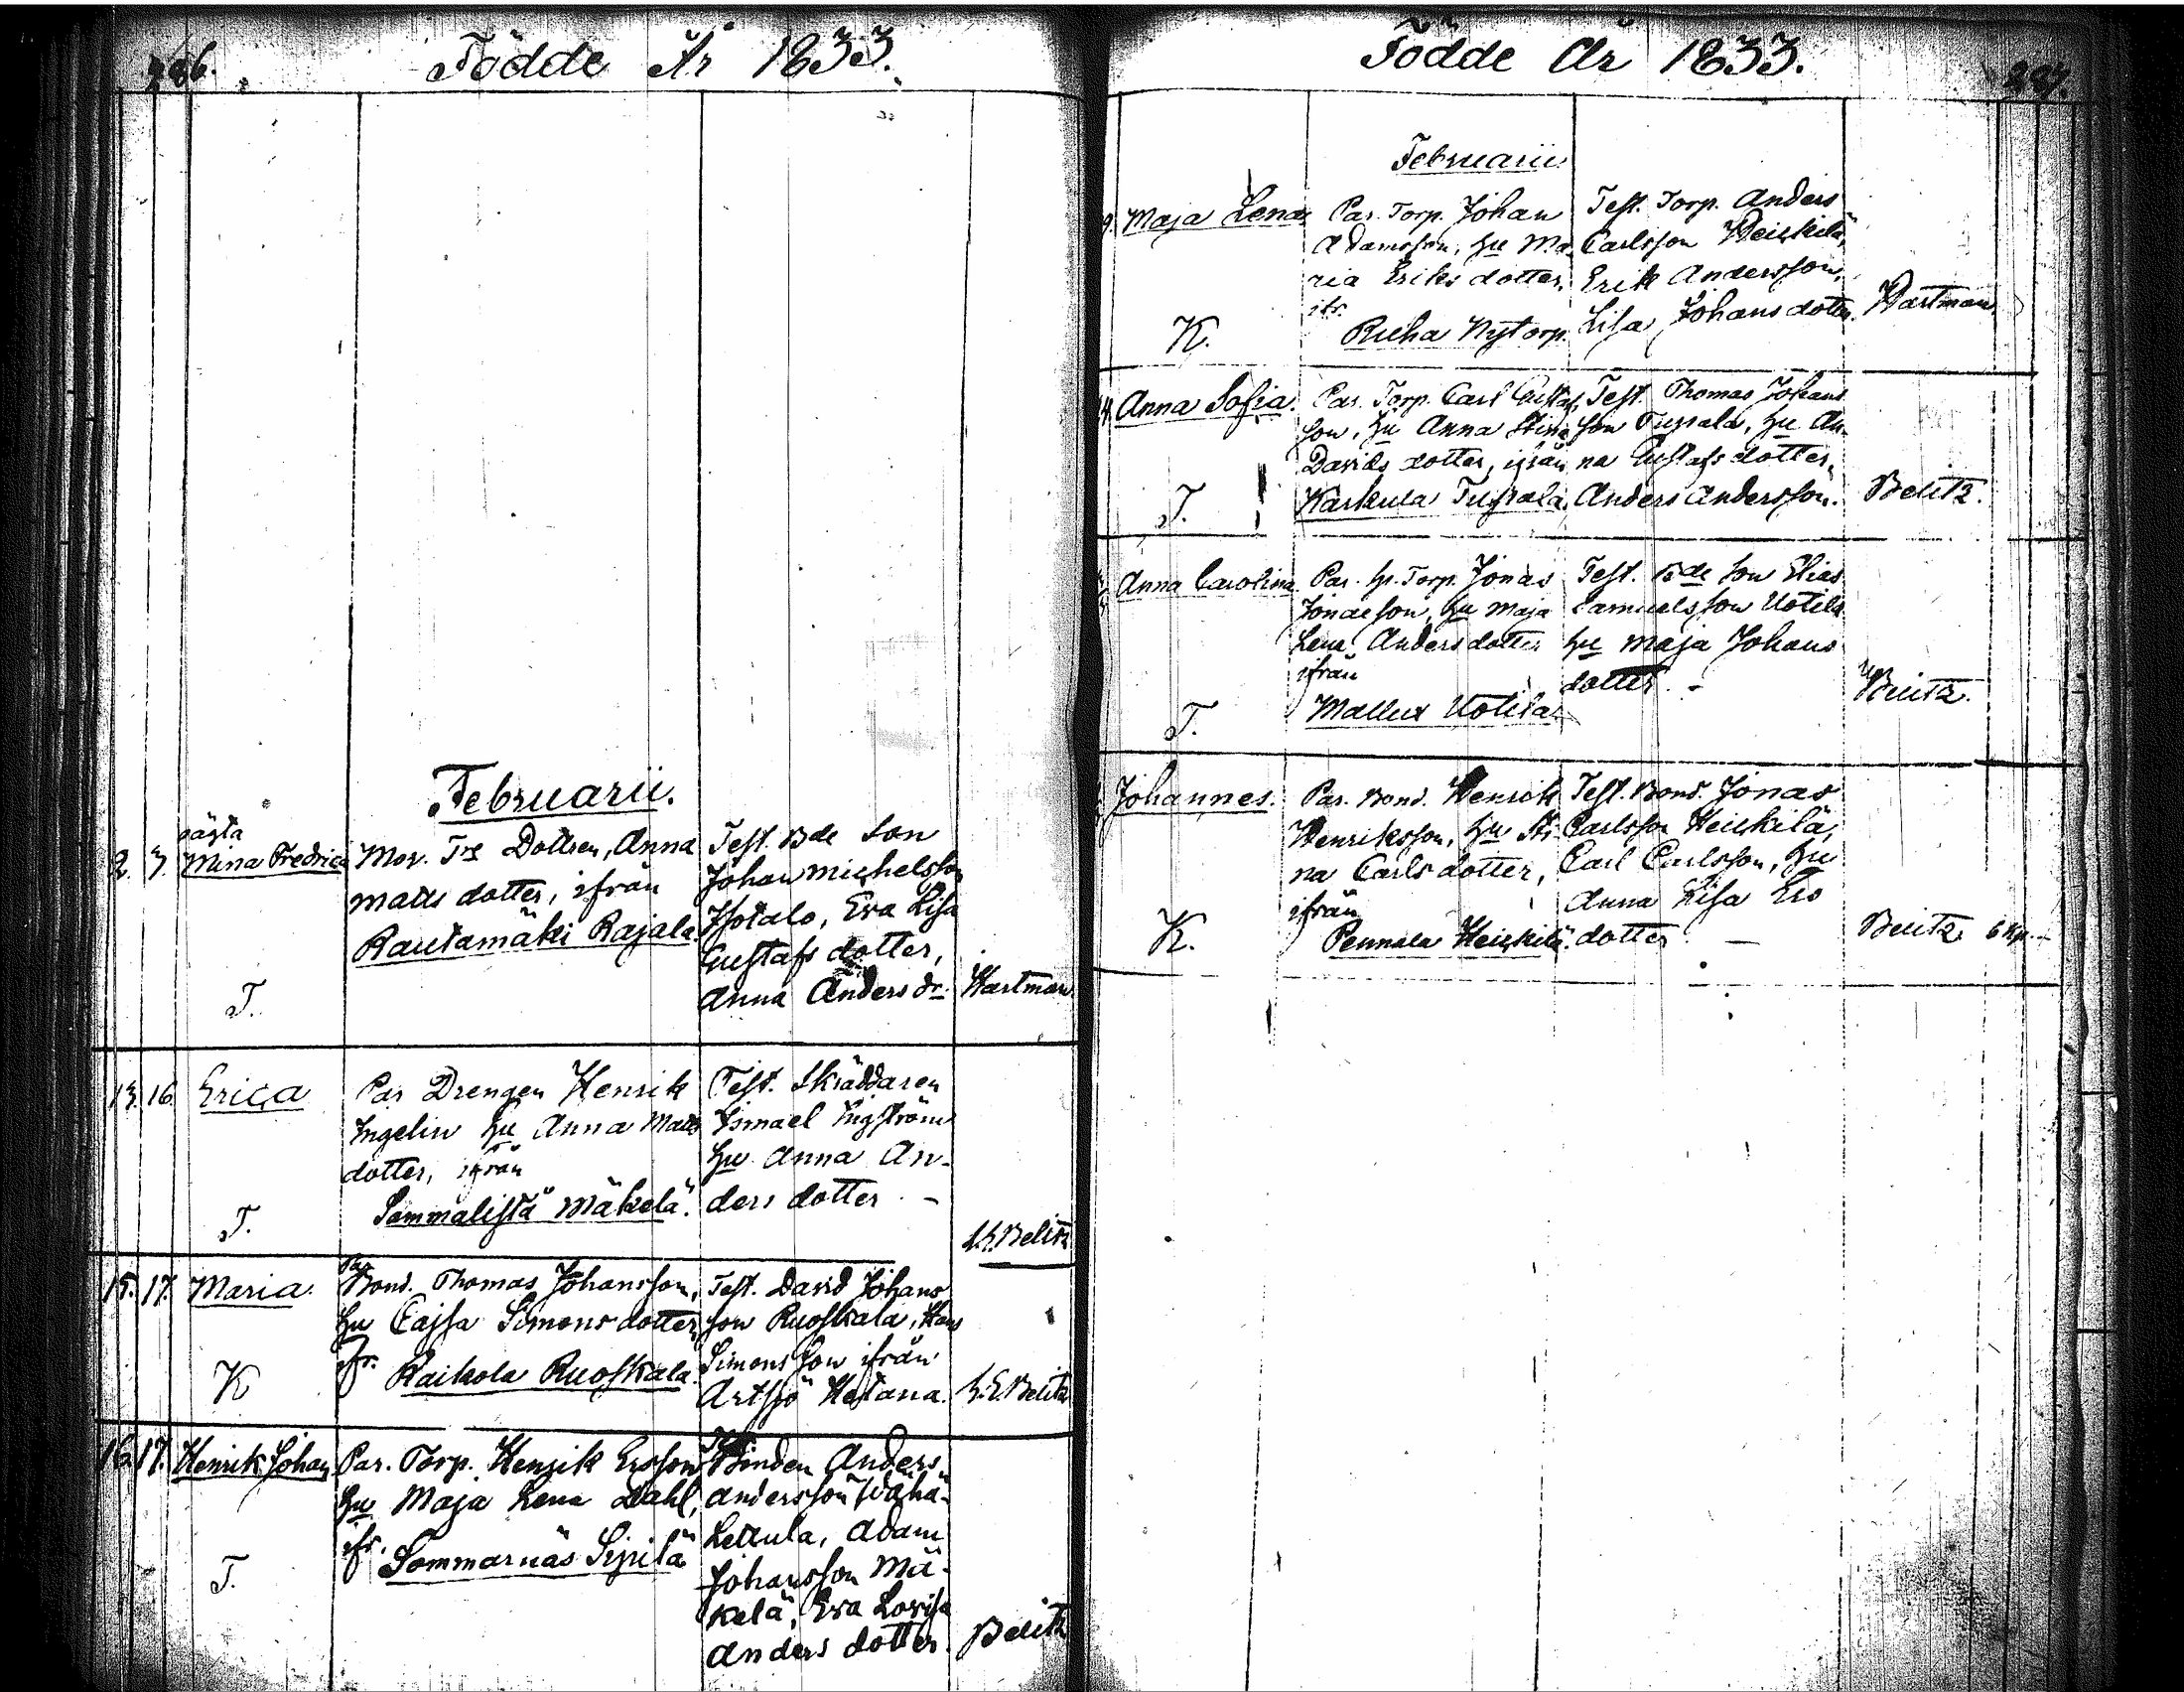 286.
Födde År 1833.
Februarii.
oägta
2. 3. Mina Fredrica
Mor. Trs Dottren, Anna
Matts dotter, ifrån
Rautamäki Rajala.
T.
Test. Bde Son
Johan Michelsson
Isotalo, Eva Lisa
Gustafs dotter,
Anna Anders dr.
Hartman.
13. 16. Erica
Par Drengen Henrik
Ingelin Hu Anna Matts
dotter, ifrån
Sammalistä Mäkelä.
T.
Test. Skräddaren
Ismael Engström
Hu Anna An-
ders dotter. -
Belitz
15. 17. Maria.
Par
Bond. Thomas Johansson,
Hu Cajsa Simons dotter,
ifr.
Raikola Ruoskala.
K
Test. David Johans
son Ruoskala, Hans
Simonsson ifrån
Artsjö Hatana.
G. E. Belitz
16. 17. Henrik Johan
Par. Torp. Henrik Ersson
Hu Maja Lena Dahl,
ifr.
Sommarnäs Sipilä
T.
Bonden Anders
Andersson Wäha-
Lettula, Adam
Johansson Mä-
kelä, Eva Lovisa
Anders dotter.
Belitz
Födde År 1833.
287.
Februarii
9. Maja Lena
Par. Torp. Johan
Adamsson, Hu Ma-
ria Eriks dotter.
ifr.
Ruha Nytorp.
K.
Test. Torp. Anders
Carlsson Heickilä,
Erik Andersson,
Lisa Johans dotter.
Hartman.
Anna Sofia.
Par. Torp. Carl Gustafs
son, Hu Anna Stina
Davids dotter, ifrån
Karkula Tursala.
T.
Test. Thomas Johans
son Tursala, Hu An-
na Gustafs dotter,
Anders Andersson.
Belitz.
Anna Carolina
Par. Sp. Torp. Jonas
Jonasson, Hu Maja
Lena Anders dotter
ifrån
Mallux Uotila
T.
Test. Bde Son Elias
Samuelsson Uotila
Hu Maja Johans
dotter. -
Belitz.
Johannes.
Par. Bond. Henrik
Henriksson, Hu Sti-
na Carls dotter,
ifrån
Pennala Heickilä.
K.
Test. Bond. Jonas
Carlsson Heickilä,
Carl Carlsson, Hu
Anna Lisa Ers
dotter. -
Belitz 6 kp. -